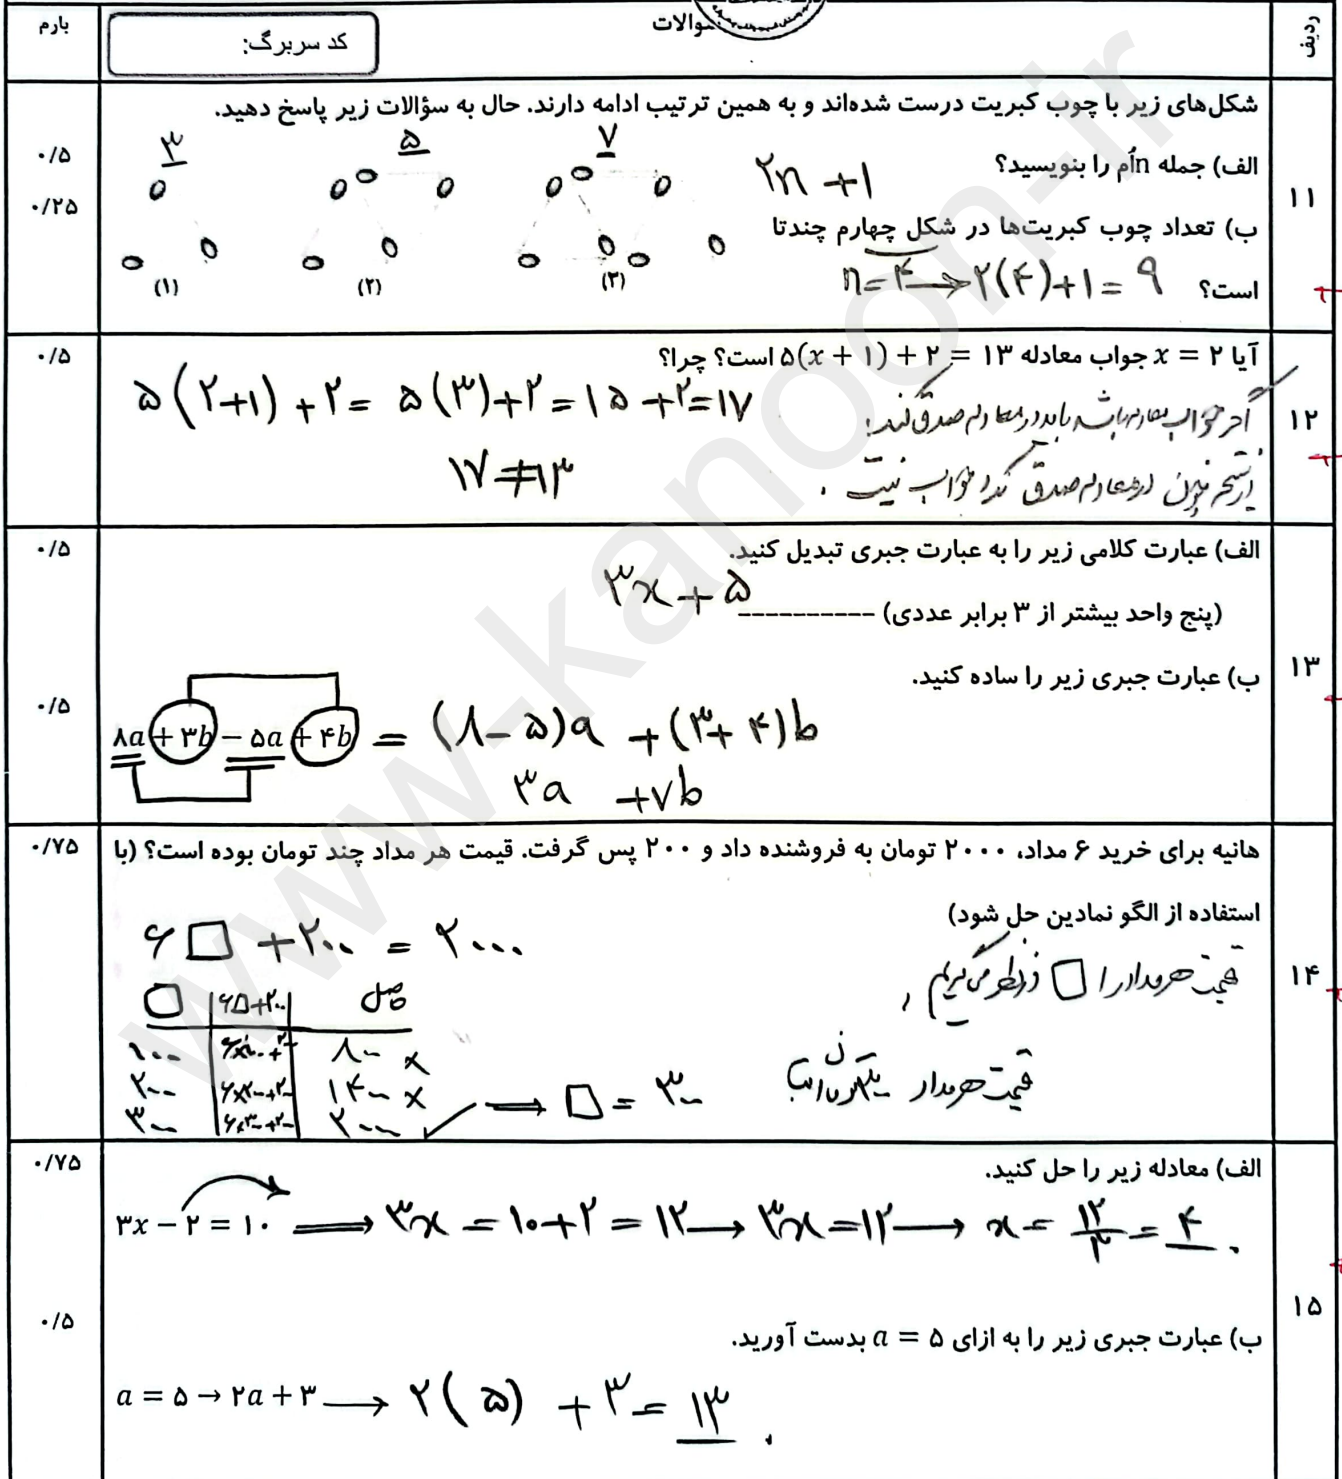 ردیف
سوالات
کد سربرگ:
بارم
۱۱
شکل‌های زیر با چوب کبریت درست شده‌اند و به همین ترتیب ادامه دارند. حال به سؤالات زیر پاسخ دهید.
۳ ۵ ۷
الف) جمله nاُم را بنویسید؟ ۲n + ۱
۰/۵
ب) تعداد چوب کبریت‌ها در شکل چهارم چندتا
۰/۲۵
است؟ n = ۴ → ۲(۴) + ۱ = ۹
(۱) (۲) (۳)
۱۲
آیا x = ۲ جواب معادله ۵(x + ۱) + ۲ = ۱۳ است؟ چرا؟
۰/۵
۵(۲+۱) + ۲ = ۵(۳) + ۲ = ۱۵ + ۲ = ۱۷
اگر جواب معادله باشد باید در معادله صدق کند.
۱۷ ≠ ۱۳
در معادله صدق نکرد جواب نیست.
۱۳
الف) عبارت کلامی زیر را به عبارت جبری تبدیل کنید.
۰/۵
(پنج واحد بیشتر از ۳ برابر عددی) ----------- ۳x + ۵
ب) عبارت جبری زیر را ساده کنید.
۰/۵
۸a + ۳b − ۵a + ۴b = (۸ − ۵)a + (۳ + ۴)b
۳a + ۷b
۱۴
هانیه برای خرید ۶ مداد، ۲۰۰۰ تومان به فروشنده داد و ۲۰۰ پس گرفت. قیمت هر مداد چند تومان بوده است؟ (با
۰/۷۵
استفاده از الگو نمادین حل شود)
۶□ + ۲۰۰ = ۲۰۰۰
قیمت هر مداد را □ در نظر می‌گیریم.
□ | ۶□+۲۰۰ | حاصل
۱۰۰ | ۶×۱۰۰+۲۰۰ | ۸۰۰ ×
۲۰۰ | ۶×۲۰۰+۲۰۰ | ۱۴۰۰ ×
۳۰۰ | ۶×۳۰۰+۲۰۰ | ۲۰۰۰ ✓ ⟹ □ = ۳۰۰
قیمت هر مداد ۳۰۰ تومان است
۱۵
الف) معادله زیر را حل کنید.
۰/۷۵
۳x − ۲ = ۱۰ ⟹ ۳x = ۱۰ + ۲ = ۱۲ → ۳x = ۱۲ → x = ۱۲/۳ = ۴.
ب) عبارت جبری زیر را به ازای a = ۵ بدست آورید.
۰/۵
a = ۵ → ۲a + ۳ → ۲(۵) + ۳ = ۱۳.
www-kanoon-ir